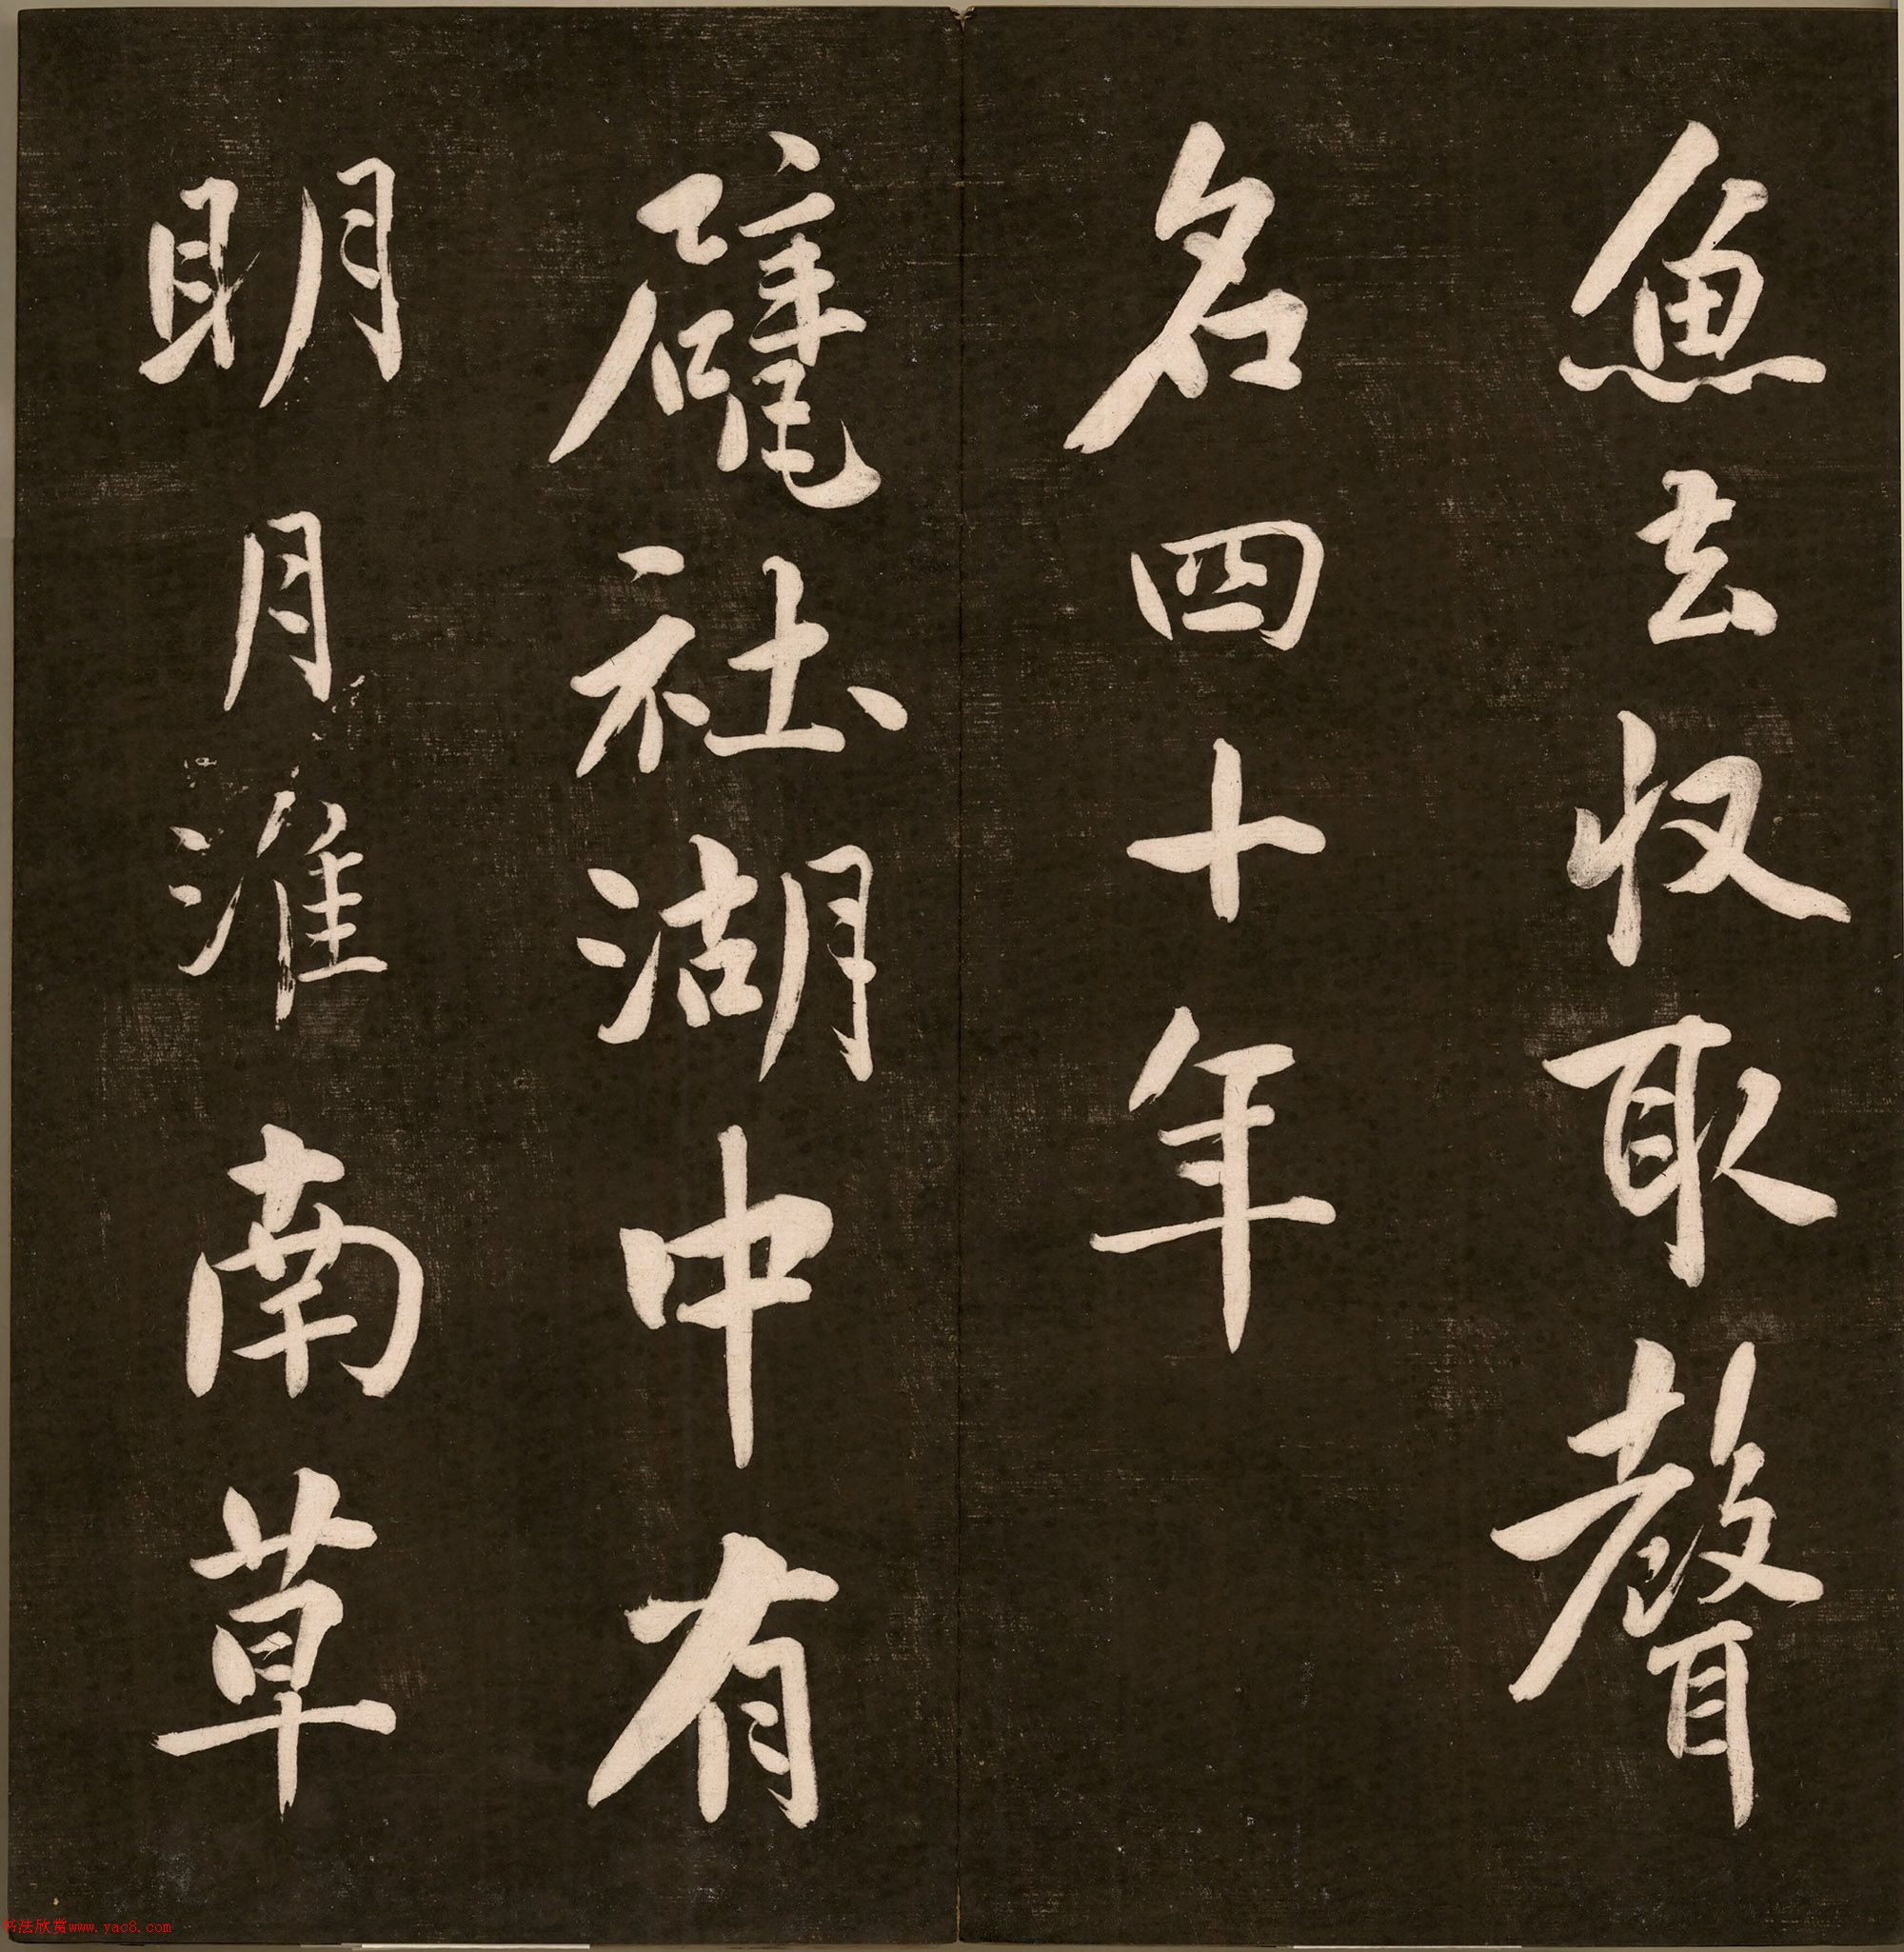 魚去收取聲
名四十年
甓社湖中有
明月淮南草
书法欣赏www.yac8.com